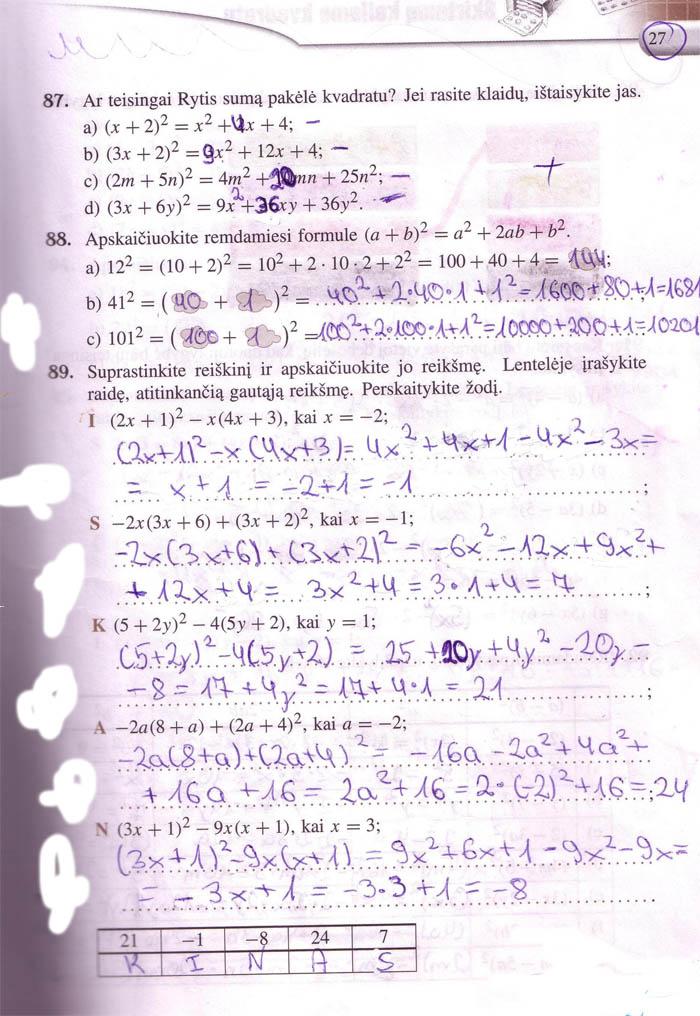 27
87. Ar teisingai Rytis sumą pakėlė kvadratu? Jei rasite klaidų, ištaisykite jas.
a) (x + 2)² = x² + 4x + 4; –
b) (3x + 2)² = 9x² + 12x + 4; –
c) (2m + 5n)² = 4m² + 20mn + 25n²; –
+
d) (3x + 6y)² = 9x² + 36xy + 36y². –
88. Apskaičiuokite remdamiesi formule (a + b)² = a² + 2ab + b².
a) 12² = (10 + 2)² = 10² + 2 · 10 · 2 + 2² = 100 + 40 + 4 = 144;
b) 41² = (40 + 1)² = 40² + 2·40·1 + 1² = 1600 + 80 + 1 = 1681
c) 101² = (100 + 1)² = 100² + 2·100·1 + 1² = 10000 + 200 + 1 = 10201
89. Suprastinkite reiškinį ir apskaičiuokite jo reikšmę. Lentelėje įrašykite
raidę, atitinkančią gautąją reikšmę. Perskaitykite žodį.
I (2x + 1)² − x(4x + 3), kai x = −2;
(2x+1)² − x(4x+3) = 4x² + 4x + 1 − 4x² − 3x =
= x + 1 = −2 + 1 = −1 ;
S −2x(3x + 6) + (3x + 2)², kai x = −1;
−2x(3x+6) + (3x+2)² = −6x² − 12x + 9x² +
+ 12x + 4 = 3x² + 4 = 3·1 + 4 = 7 ;
K (5 + 2y)² − 4(5y + 2), kai y = 1;
(5+2y)² − 4(5y+2) = 25 + 20y + 4y² − 20y −
− 8 = 17 + 4y² = 17 + 4·1 = 21 ;
A −2a(8 + a) + (2a + 4)², kai a = −2;
−2a(8+a) + (2a+4)² = −16a − 2a² + 4a² +
+ 16a + 16 = 2a² + 16 = 2·(−2)² + 16 = 24 ;
N (3x + 1)² − 9x(x + 1), kai x = 3;
(3x+1)² − 9x(x+1) = 9x² + 6x + 1 − 9x² − 9x =
= − 3x + 1 = −3·3 + 1 = −8
21 −1 −8 24 7
K I N A S